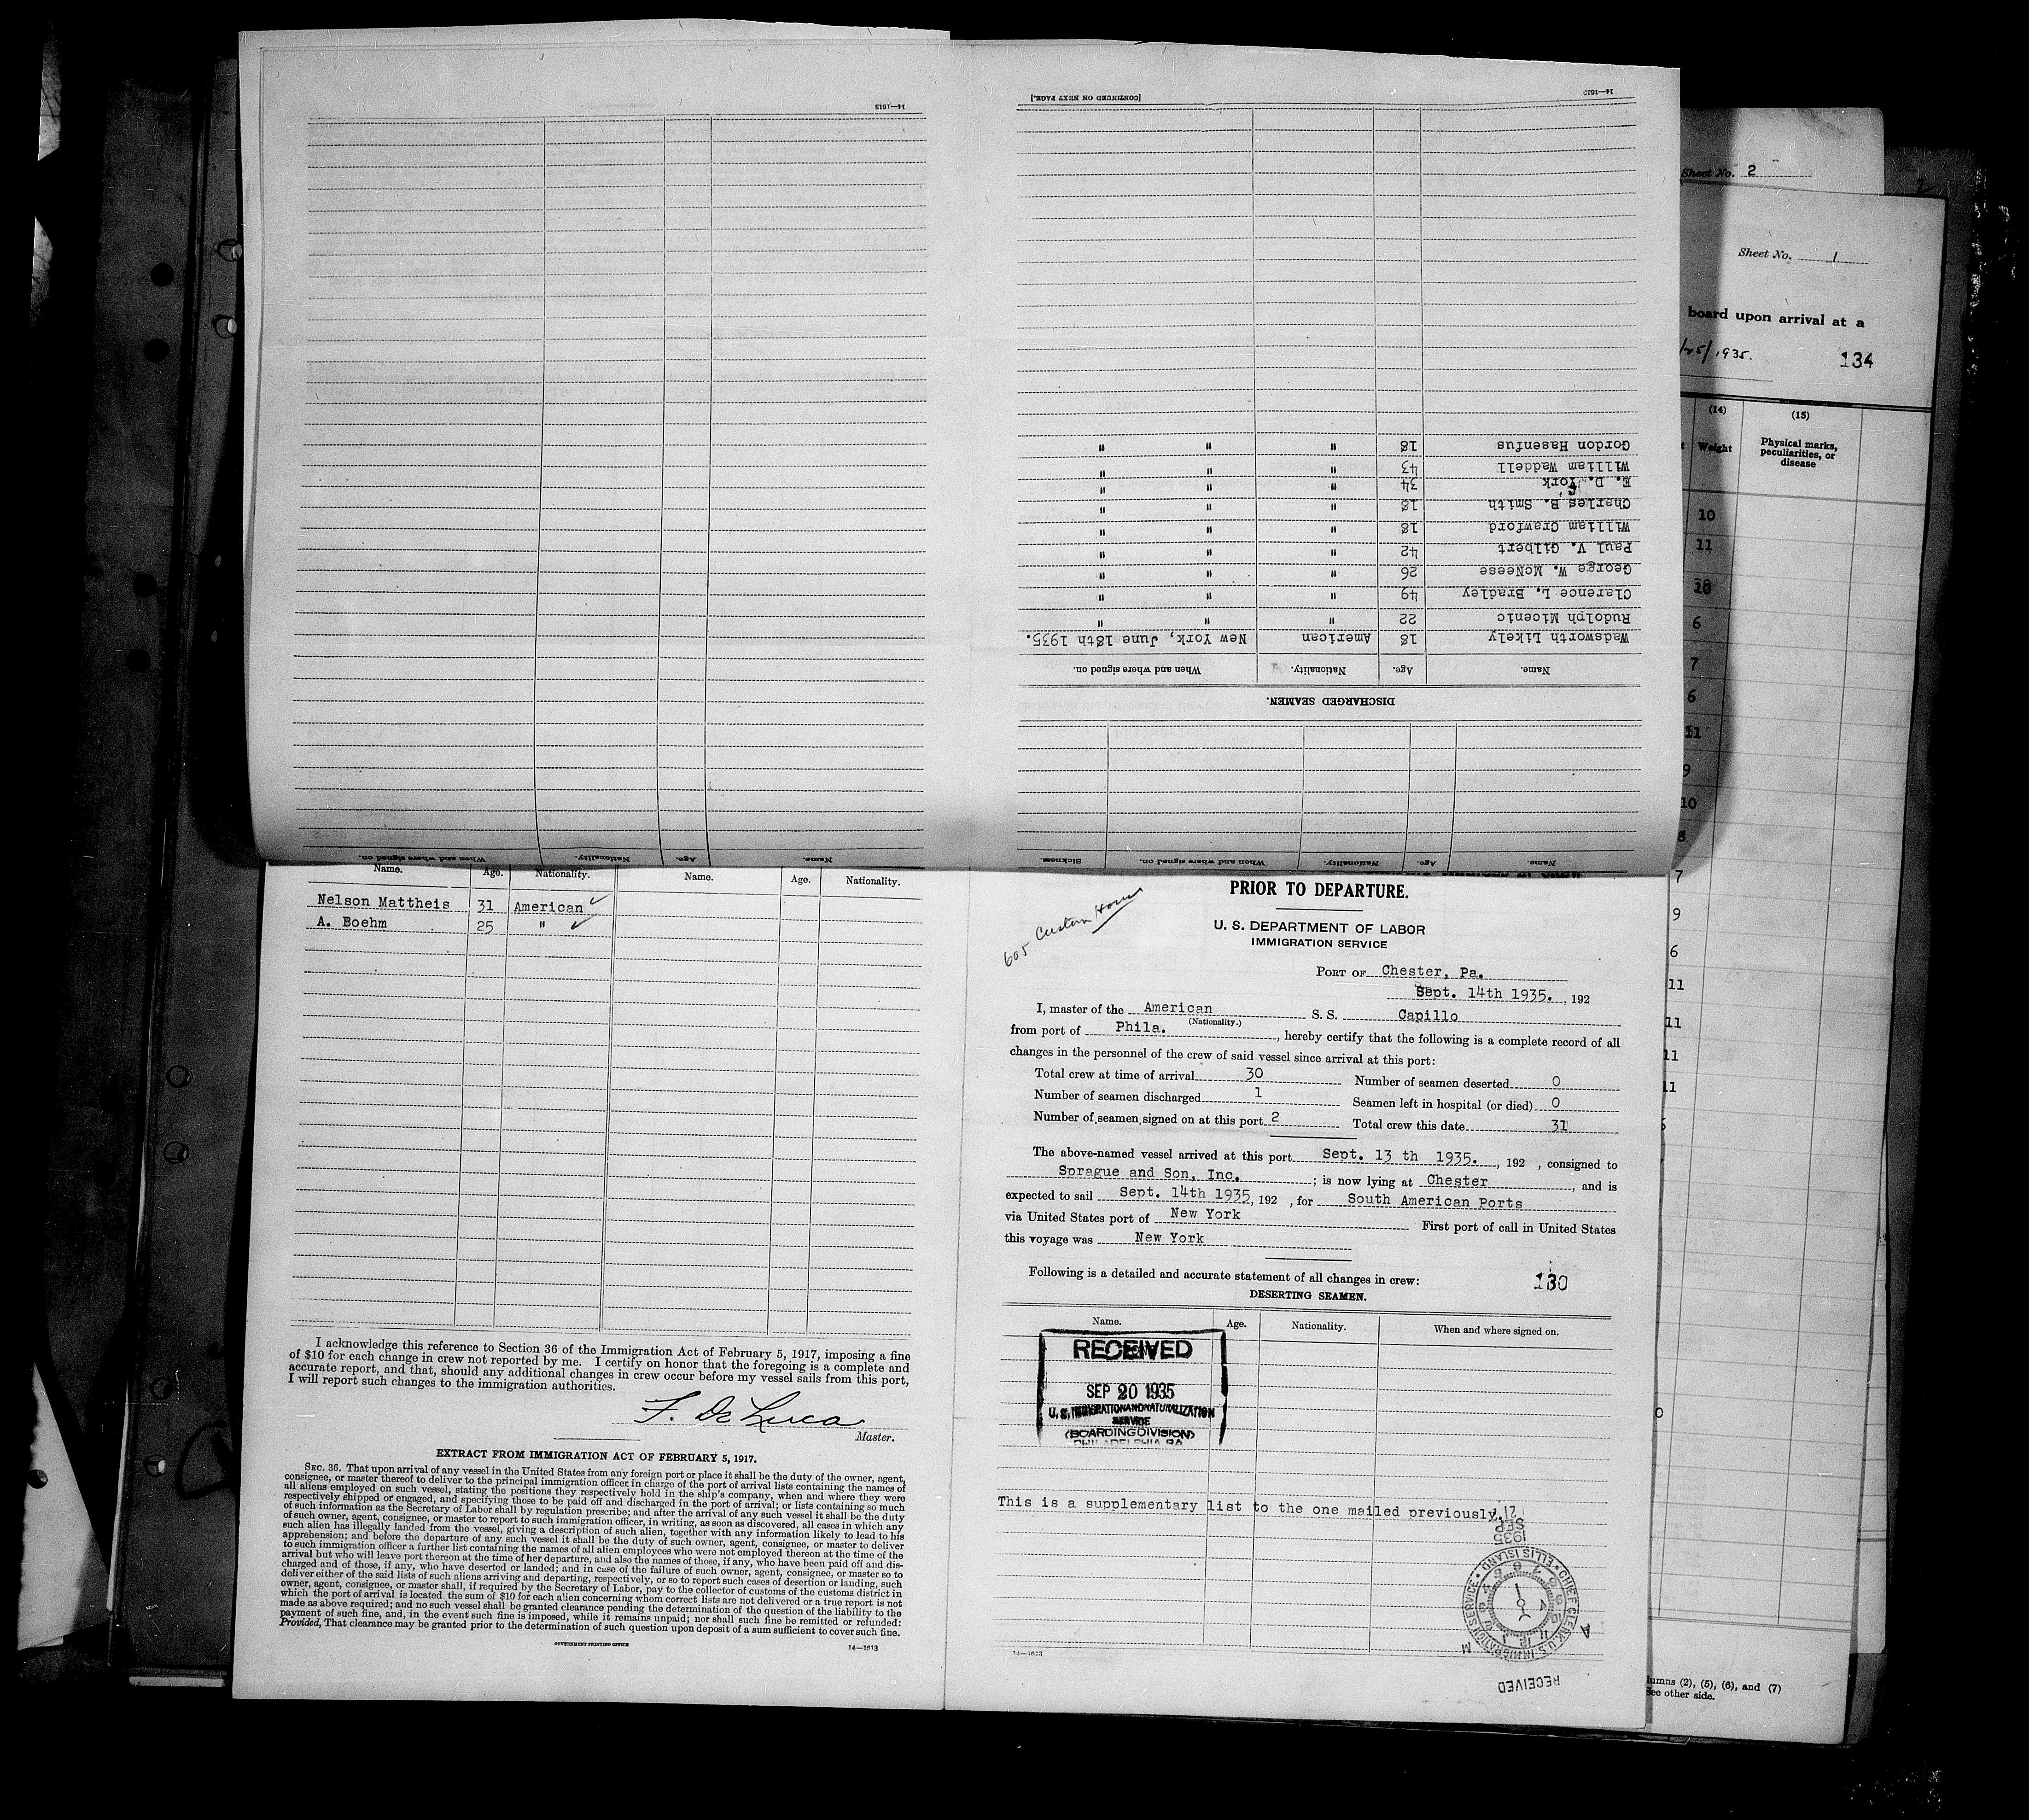 14—1613
[CONTINUED ON NEXT PAGE.]
14—1613
Gordon Hasenfus 18 " " "
William Waddell 43 " " "
E. D. York 34 " " "
Charles B. Smith 18 " " "
William Crawford 18 " " "
Paul V. Gilbert 42 " " "
George W. McNeese 26 " " "
Clarence L. Bradley 49 " " "
Rudolph Micenic 22 " " "
Wadsworth Likely 18 American New York, June 18th 1935.
Name. Age. Nationality. When and where signed on.
DISCHARGED SEAMEN.
Name. Age. Nationality. When and where signed on. Sickness.
Name. Age. Nationality. When and where signed on.
Sheet No. 2
2
Sheet No. 1
board upon arrival at a
1935.
134
(14) (15)
Weight
Physical marks,
peculiarities, or
disease
10
11
10
6
7
6
11
9
10
8
7
9
6
11
11
11
11
Name. Age. Nationality. Name. Age. Nationality.
Nelson Mattheis 31 American
A. Boehm 25 "
I acknowledge this reference to Section 36 of the Immigration Act of February 5, 1917, imposing a fine
of $10 for each change in crew not reported by me. I certify on honor that the foregoing is a complete and
accurate report, and that, should any additional changes in crew occur before my vessel sails from this port,
I will report such changes to the immigration authorities.
F. De Luca
Master.
EXTRACT FROM IMMIGRATION ACT OF FEBRUARY 5, 1917.
SEC. 36. That upon arrival of any vessel in the United States from any foreign port or place it shall be the duty of the owner, agent,
consignee, or master thereof to deliver to the principal immigration officer in charge of the port of arrival lists containing the names of
all aliens employed on such vessel, stating the positions they respectively hold in the ship's company, when and where they were
respectively shipped or engaged, and specifying those to be paid off and discharged in the port of arrival; or lists containing so much
of such information as the Secretary of Labor shall by regulation prescribe; and after the arrival of any such vessel it shall be the duty
of such owner, agent, consignee, or master to report to such immigration officer, in writing, as soon as discovered, all cases in which any
such alien has illegally landed from the vessel, giving a description of such alien, together with any information likely to lead to his
apprehension; and before the departure of any such vessel it shall be the duty of such owner, agent, consignee, or master to deliver
to such immigration officer a further list containing the names of all alien employees who were not employed thereon at the time of the
arrival but who will leave port thereon at the time of her departure, and also the names of those, if any, who have been paid off and dis-
charged and of those, if any, who have deserted or landed; and in case of the failure of such owner, agent, consignee, or master so to
deliver either of the said lists of such aliens arriving and departing, respectively, or so to report such cases of desertion or landing, such
owner, agent, consignee, or master shall, if required by the Secretary of Labor, pay to the collector of customs of the customs district in
which the port of arrival is located the sum of $10 for each alien concerning whom correct lists are not delivered or a true report is not
made as above required; and no such vessel shall be granted clearance pending the determination of the question of the liability to the
payment of such fine, and, in the event such fine is imposed, while it remains unpaid; nor shall such fine be remitted or refunded:
Provided, That clearance may be granted prior to the determination of such question upon deposit of a sum sufficient to cover such fine.
GOVERNMENT PRINTING OFFICE
14—1613
605 Custom House
PRIOR TO DEPARTURE.
U. S. DEPARTMENT OF LABOR
IMMIGRATION SERVICE
PORT OF Chester, Pa.
Sept. 14th 1935. , 192
I, master of the American S. S. Capillo
(Nationality.)
from port of Phila. , hereby certify that the following is a complete record of all
changes in the personnel of the crew of said vessel since arrival at this port:
Total crew at time of arrival 30 Number of seamen deserted 0
Number of seamen discharged 1 Seamen left in hospital (or died) 0
Number of seamen signed on at this port 2 Total crew this date 31
The above-named vessel arrived at this port Sept. 13 th 1935. , 192 , consigned to
Sprague and Son, Inc. ; is now lying at Chester , and is
expected to sail Sept. 14th 1935, 192 , for South American Ports
via United States port of New York First port of call in United States
this voyage was New York
Following is a detailed and accurate statement of all changes in crew:
130
DESERTING SEAMEN.
Name. Age. Nationality. When and where signed on.
RECEIVED
SEP 20 1935
U. S. IMMIGRATION AND NATURALIZATION
SERVICE
(BOARDING DIVISION)
PHILADELPHIA PA
This is a supplementary list to the one mailed previously.
SEP 21
1935
CHIEF CLERK U.S. IMMIGRATION SERVICE • ELLIS ISLAND •
A M
RECEIVED
14—1613
lumns (2), (5), (6), and (7)
See other side.